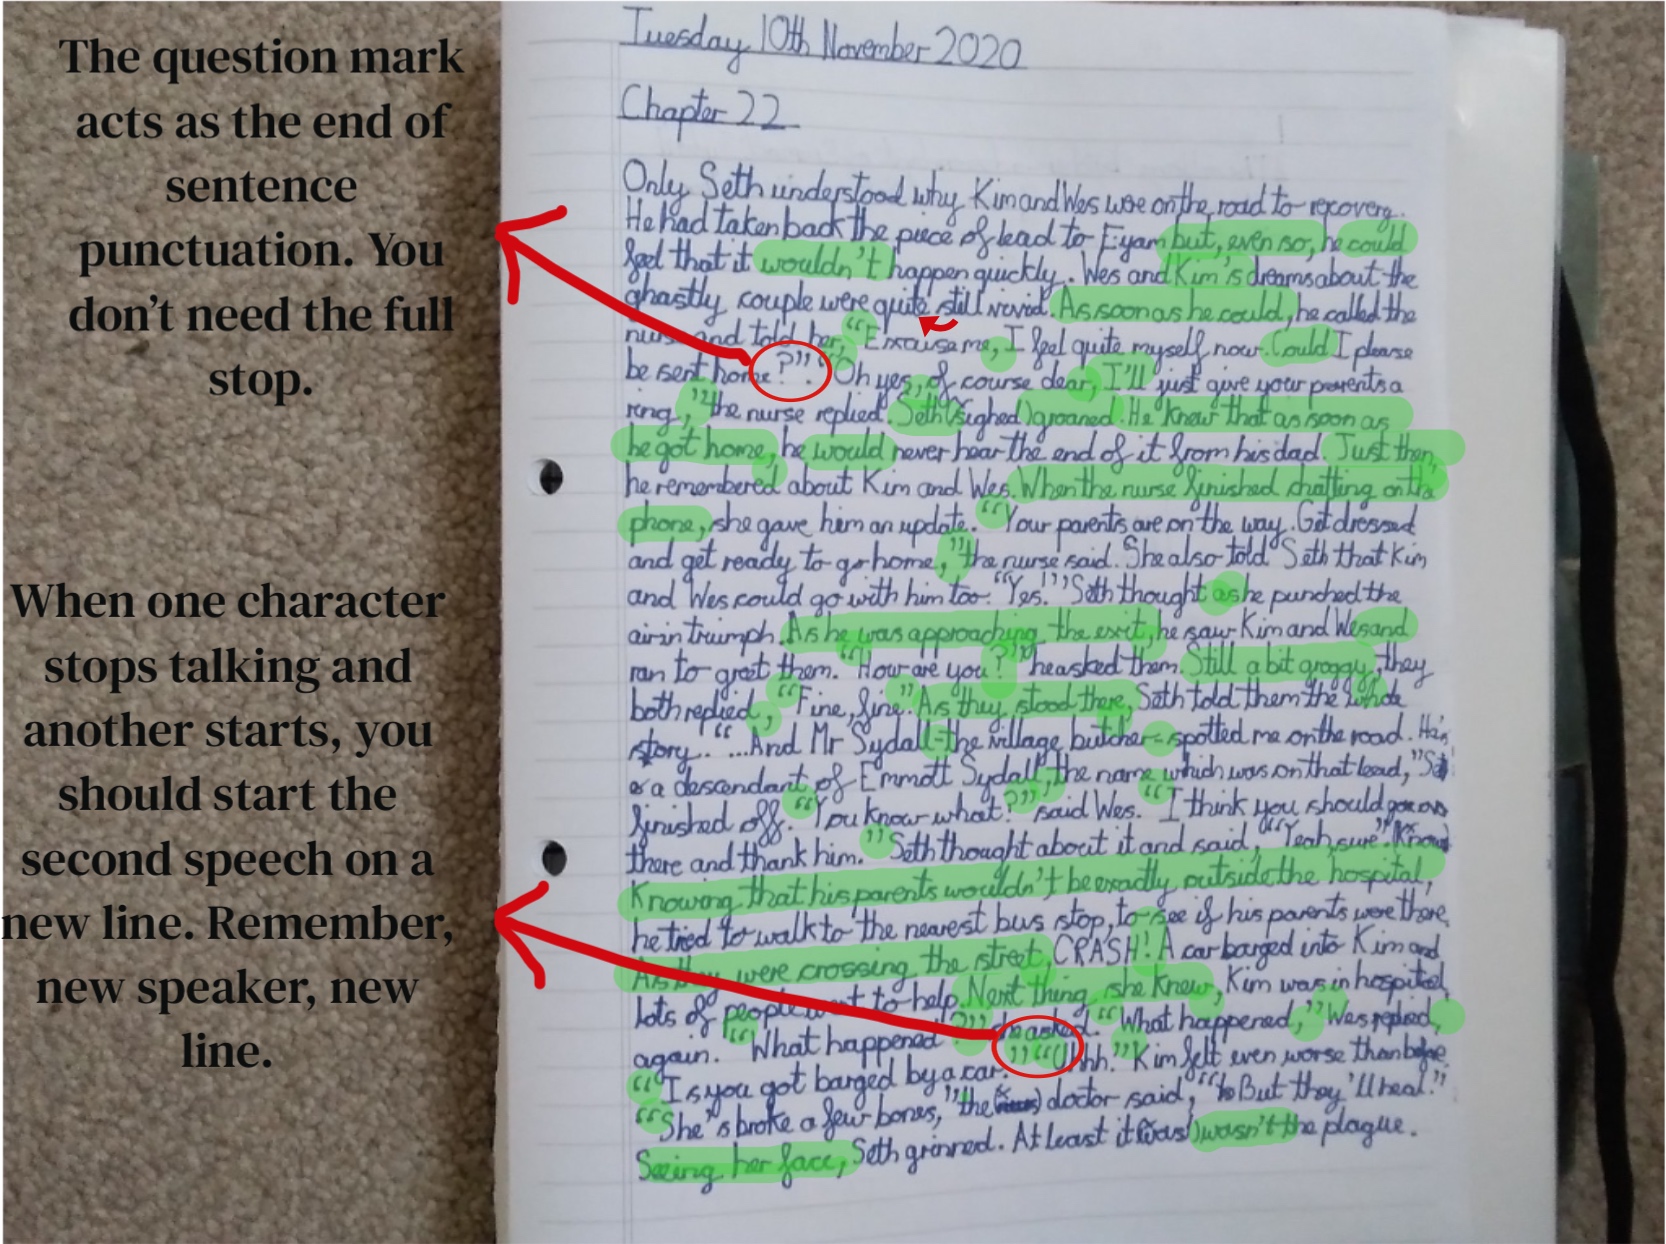 The question mark
acts as the end of
sentence
punctuation. You
don't need the full
stop.
When one character
stops talking and
another starts, you
should start the
second speech on a
new line. Remember,
new speaker, new
line.
Tuesday 10th November 2020
Chapter 22
Only Seth understood why Kim and Wes were on the road to recovery.
He had taken back the piece of lead to Eyam but, even so, he could
feel that it wouldn't happen quickly. Wes and Kim's dreams about the
ghastly couple were quite still vivid. As soon as he could, he called the
nurse and told her, "Excuse me, I feel quite myself now. Could I please
be sent home?". "Oh yes, of course dear, I'll just give your parents a
ring," the nurse replied. Seth (sighed) groaned. He knew that as soon as
he got home, he would never hear the end of it from his dad. Just then,
he remembered about Kim and Wes. When the nurse finished chatting on the
phone, she gave him an update. "Your parents are on the way. Get dressed
and get ready to go home," the nurse said. She also told Seth that Kim
and Wes could go with him too. "Yes!" Seth thought as he punched the
air in truimph. As he was approaching the exit, he saw Kim and Wes and
ran to greet them. "How are you?" he asked them. Still a bit groggy, they
both replied, "Fine, fine." As they stood there, Seth told them the whole
story. "...And Mr Sydall-the village butcher-spotted me on the road. He's
a descendant of Emmott Sydall, the name which was on that lead,"
finished off. "You know what?", said Wes. "I think you should
there and thank him." Seth thought about it and said, "Yeah, sure."
Knowing that his parents wouldn't be exactly outside the hospital,
he tried to walk to the nearest bus stop, to see if his parents were there.
As they were crossing the street, CRASH! A car barged into Kim and
lots of people went to help. Next thing she knew, Kim was in hospital
again. "What happened?" she asked. "What happened," Wes replied,
"Is you got barged by a car." "Uhhh." Kim felt even worse than before.
"She's broke a few bones," the doctor said, "But they'll heal."
Seeing her face, Seth grinned. At least it (was) wasn't the plague.